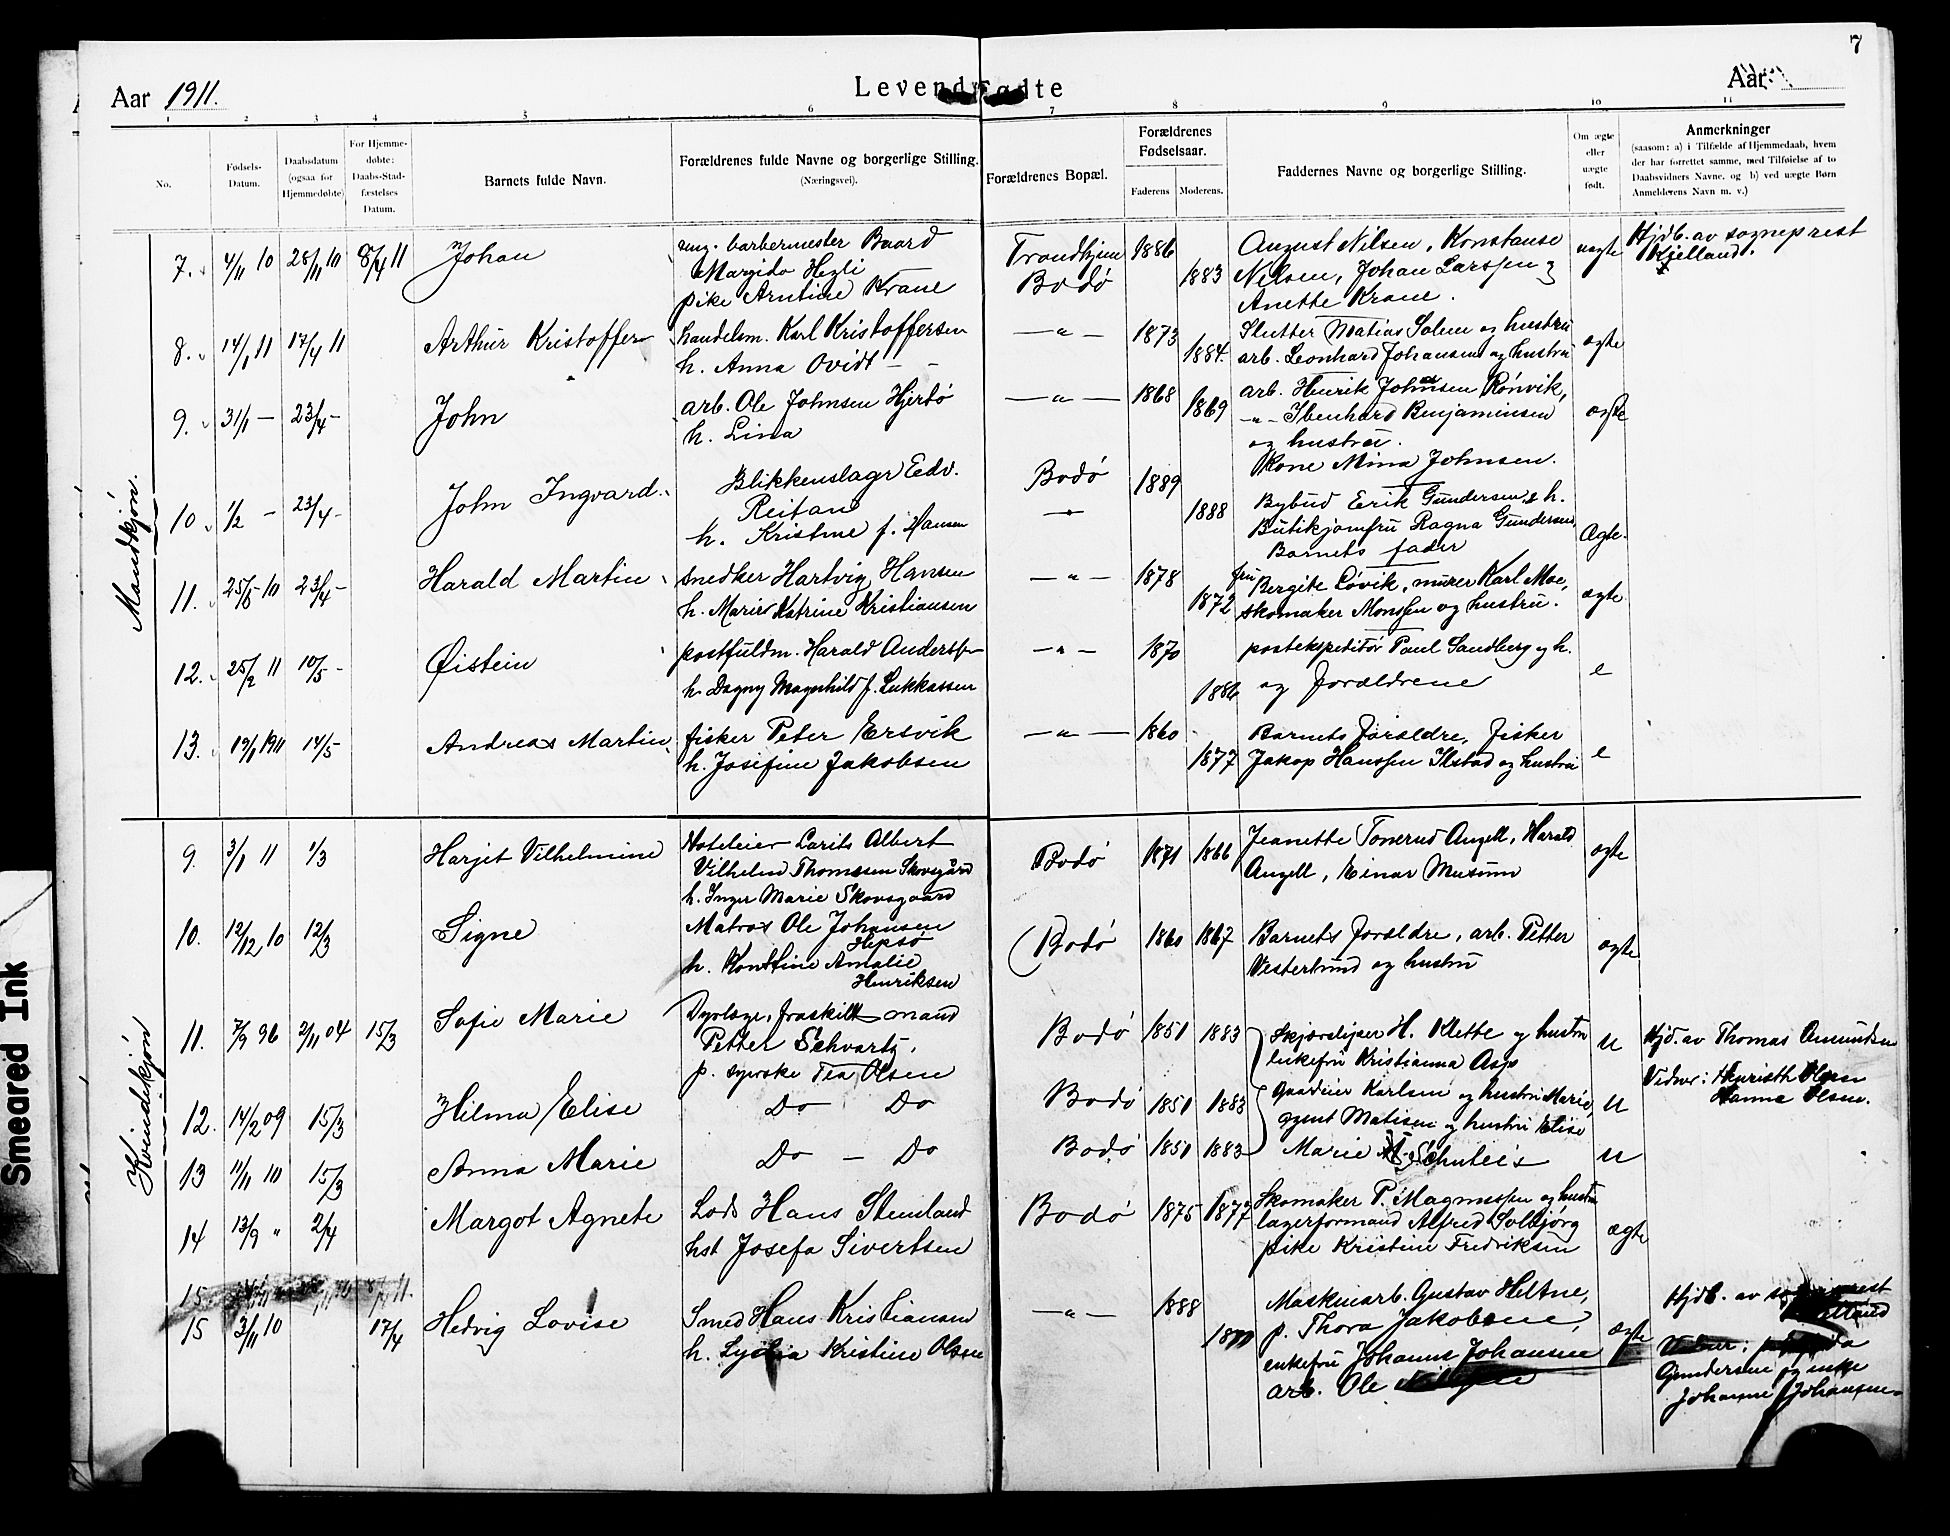 7
Aar 1911.
Levendefødte
Aar
1 2 3 4 5 6 7 8 9 10 11
No.
Fødsels-
Datum.
Daabsdatum
(ogsaa for
Hjemmedøbte)
For Hjemme-
døbte:
Daabs-Stad-
fæstelses
Datum.
Barnets fulde Navn.
Forældrenes fulde Navne og borgerlige Stilling.
(Næringsvei).
Forældrenes Bopæl.
Forældrenes
Fødselsaar.
Faderens. Moderens.
Faddernes Navne og borgerlige Stilling.
Om ægte
eller
uægte
født.
Anmerkninger
(saasom: a) i Tilfælde af Hjemmedaab, hvem
der har forrettet samme, med Tilføielse af to
Daabsvidners Navne, og b) ved uægte Børn
Anmelderens Navn m. v.)
Mandkjøn.
7. 4/11 10 28/11 10 8/4 11 Johan
ung. barbermester Baard
Margido Hegli
pike Arntine Krane
Trondhjem 1886
Bodø 1883
August Nilsen, Konstanse
Nilsen, Johan Larssen &
Anette Krane.
uægte
Hjdb. av sogneprest
Kjelland.
8. 14/1 11 17/4 11 Arthur Kristoffer
handelsm. Karl Kristoffersen
h. Anna Ovidt - -
— " — 1873 1884.
Slutter Matias Solem og hustru
arb. Leonhard Johansen og hustru
ægte
9. 31/1 - 23/4 - John
arb. Ole Johnsen Hjertø
h. Lina
— " — 1868 1869
arb. Henrik Johnsen Rønvik,
- " - Ibenhard Benjaminsen
og hustru.
Kone Mina Johnsen.
ægte
10 1/2 - 23/4 - John Ingvard.
Blikkenslagr Edv.
Reitan
h. Kristine f. Hansen
Bodø 1889
— " — 1888
Bybud Erik Gundersen & h.
Butikjomfru Ragna Gundersen,
Barnets fader
Ægte.
11. 25/8 10 23/4 - Harald Martin
snedker Hartvig Hansen
h. Marie Katrine Kristiansen
— " — 1878 1872
fru Bergite Løvik, murer Karl Moe,
skomaker Monssen og hustru.
ægte
12. 25/2 11 10/5 - Øistein
postfuldm. Harald Anderssen
h. Dagny Magnhild f. Lukkassen
— " — 1870 1886
postekspeditør Paul Sandberg og h.
og forældrene
e
13. 19/1 1911 14/5 Andreas Martin
fisker Peter Ersvik
h. Josefine Jakobsen
— " — 1860 1877
Barnets forældre, fisker
Jakop Hanssen Ilstad og hustru
e
Kvindekjøn
9. 3/1 11 1/3 Harjet Vilhelmine
Hoteleier Larits Albert
Vilhelm Thomssen Skovsgård
h. Inger Marie Skovsgaard
Bodø 1871 1866
Jeanette Tonerud Angell, Harald
Angell, Einar Musum
ægte
10. 12/12 10 12/3 Signe
Matros Ole Johansen
Hepsø
h. Konstine Amalie
Henriksen
Bodø 1860 1867
Barnets forældre, arb. Petter
Vesterlund og hustru
ægte
11. 7/9 96 2/11 04 15/3 Sofie Marie
Dyrlæge, fraskilt mand
Petter Schvartz,
p. syerske Tea Olsen
Bodø 1851 1883
Skjærsliper H. Klette og hustru
enkefru Kristianna Asp
u
Hjd. av Thomas Amundsen
Vidner: Henrieth Olsen
Hanna Olsen.
12. 14/2 09 15/3 Hilma Elise
Do Do
Bodø 1851 1883
Gaardeier Karlsen og hustru Marie,
agent Matisen og hustru Elise
u
13 11/11 10 15/3 Anna Marie
Do — Do
Bodø 1851 1883
Marie Schuleis
u
14 13/9 " 2/4 Margot Agnete
Lods Hans Stemland
hst Josefa Sivertsen
Bodø 1875 1877
Skomaker P. Magnussen og hustru
lagerformand Alfred Solbjørg
pike Kristine Fredriksen
ægte
15 8/4 11.
15 3/11 10 17/4 Hedvig Lovise
Smed Hans Kristiansen
h. Lydia Kristine Olsen
— " — 1888
Maskinarb. Gustav Heltne,
p. Thora Jakobsene,
enkefru Johanne Johansen
arb. Ole
ægte
Hjdb. av
Vidner:
Gundersen og enke
Johanne Johansen
Smeared Ink